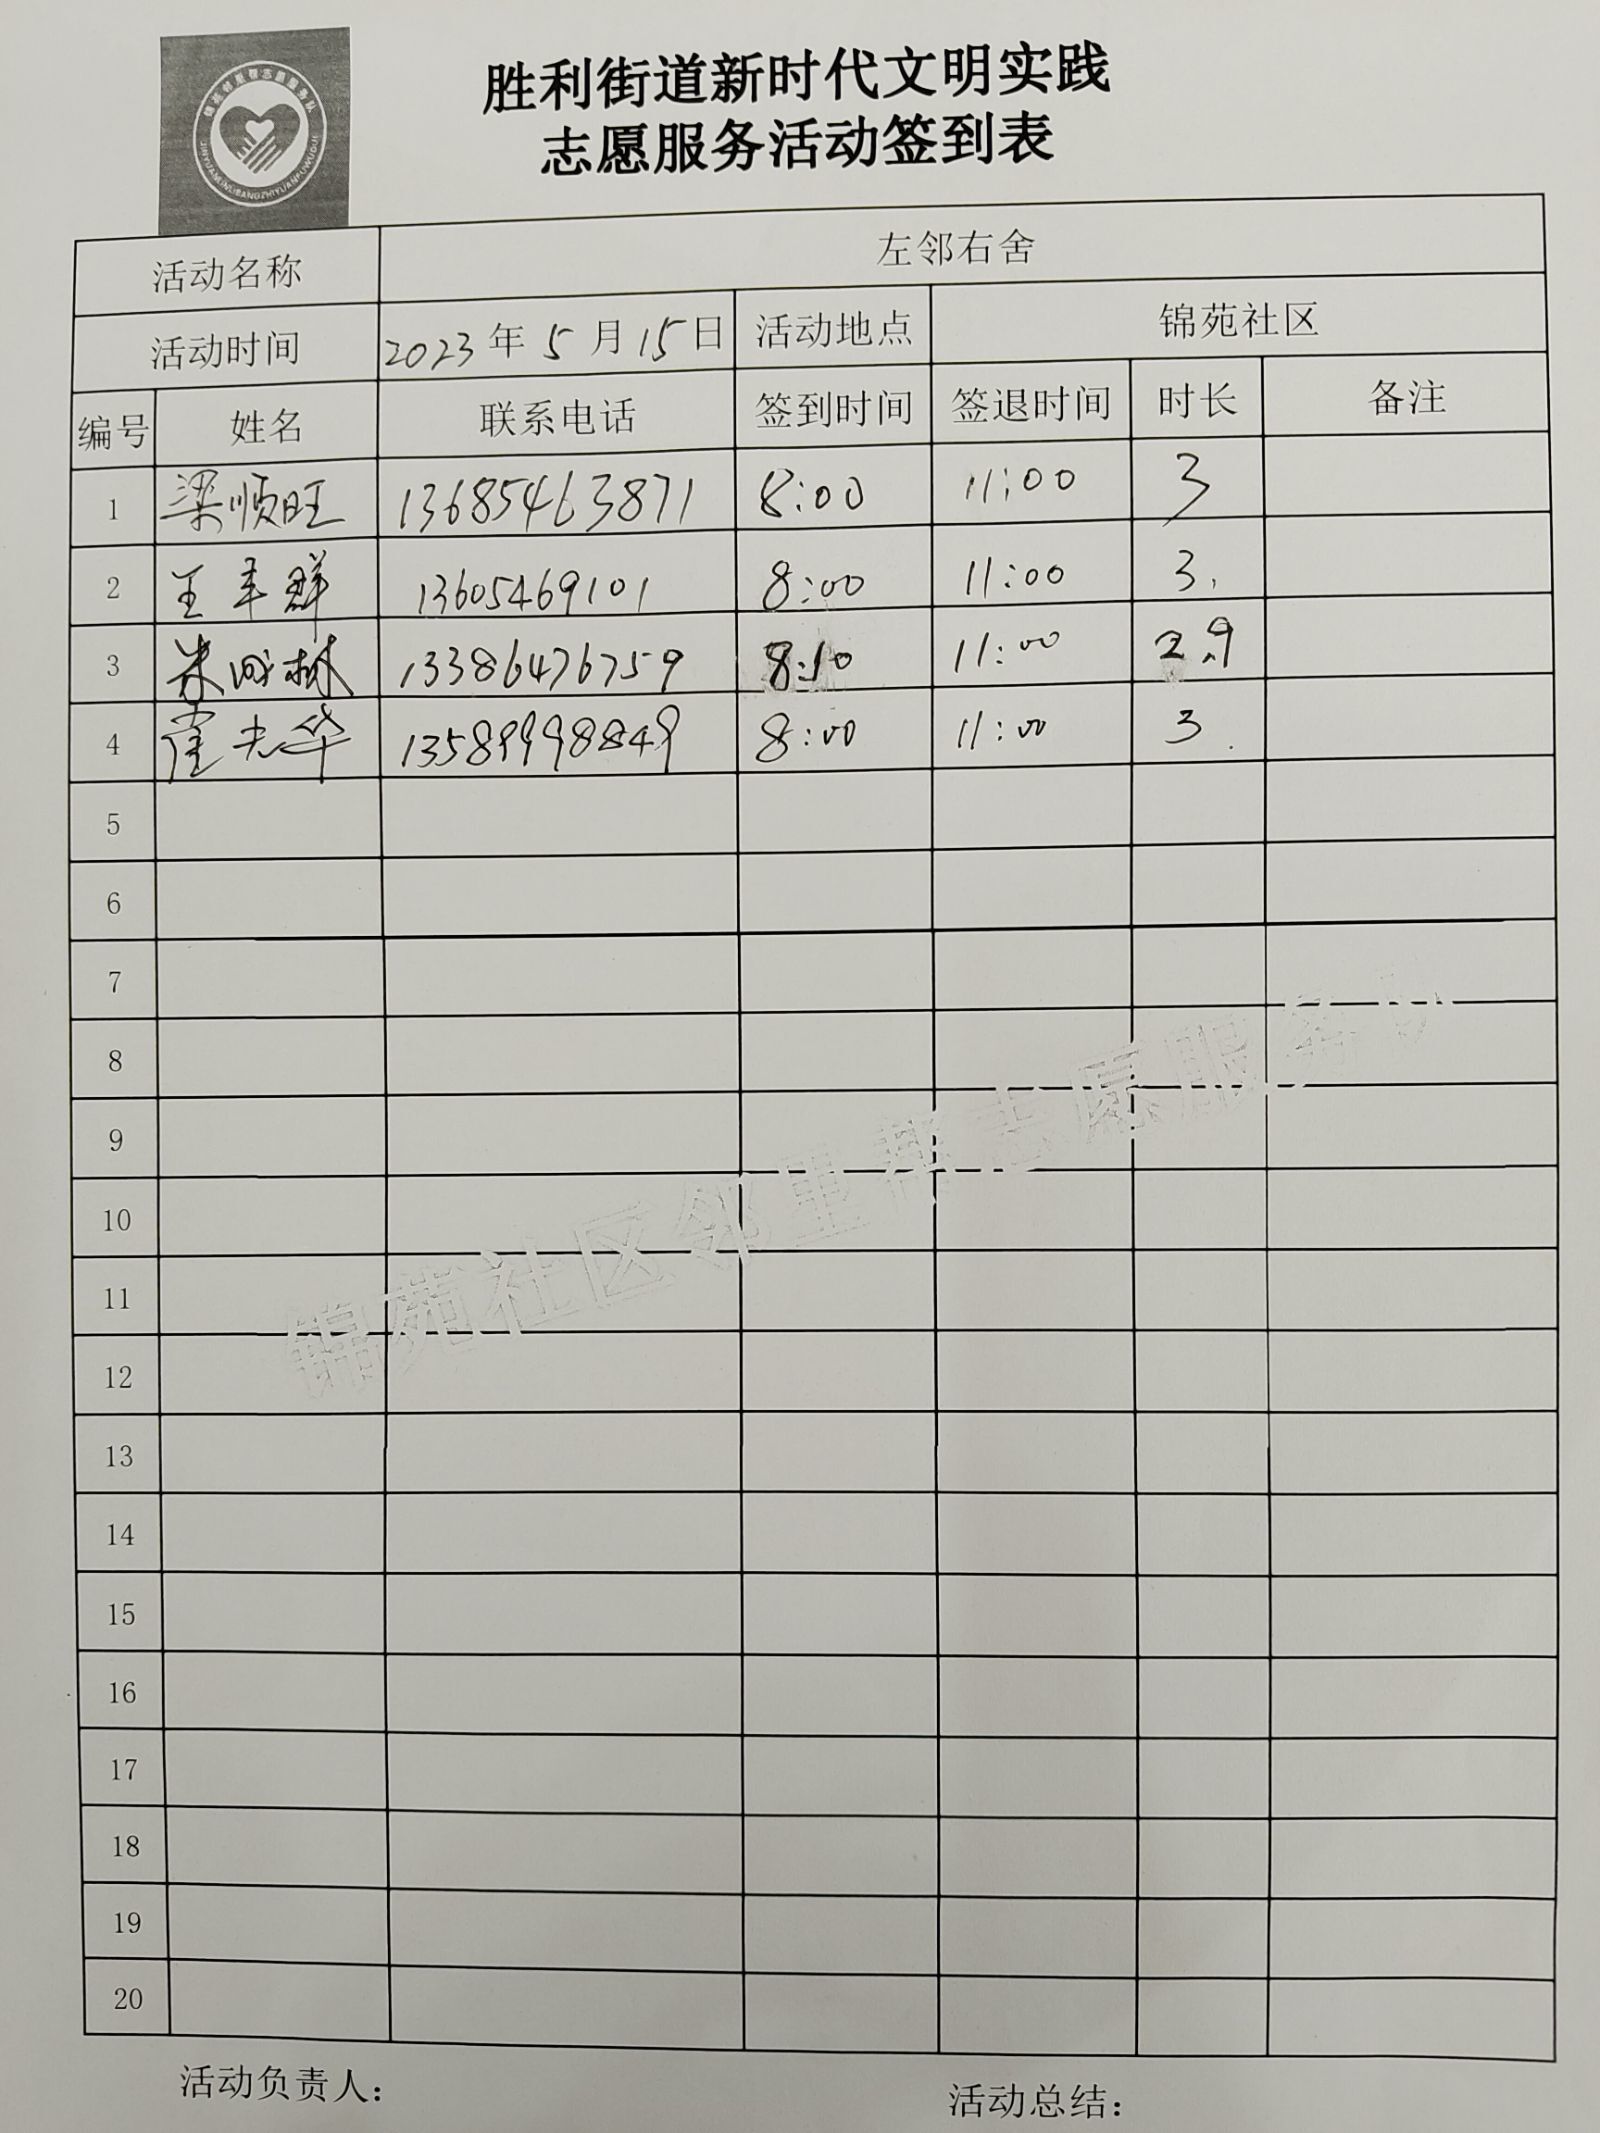 胜利街道新时代文明实践
志愿服务活动签到表
活动名称 左邻右舍
活动时间 2023年5月15日 活动地点 锦苑社区
编号 姓名 联系电话 签到时间 签退时间 时长 备注
1 梁顺旺 13685463871 8:00 11:00 3
2 王丰群 13605469101 8:00 11:00 3.
3 朱树林 13386476759 8:10 11:00 2.9
4 崔光华 13589998849 8:00 11:00 3.
5
6
7
8
9
10
11
12
13
14
15
16
17
18
19
20
锦苑社区邻里帮志愿服务队
活动负责人： 活动总结：